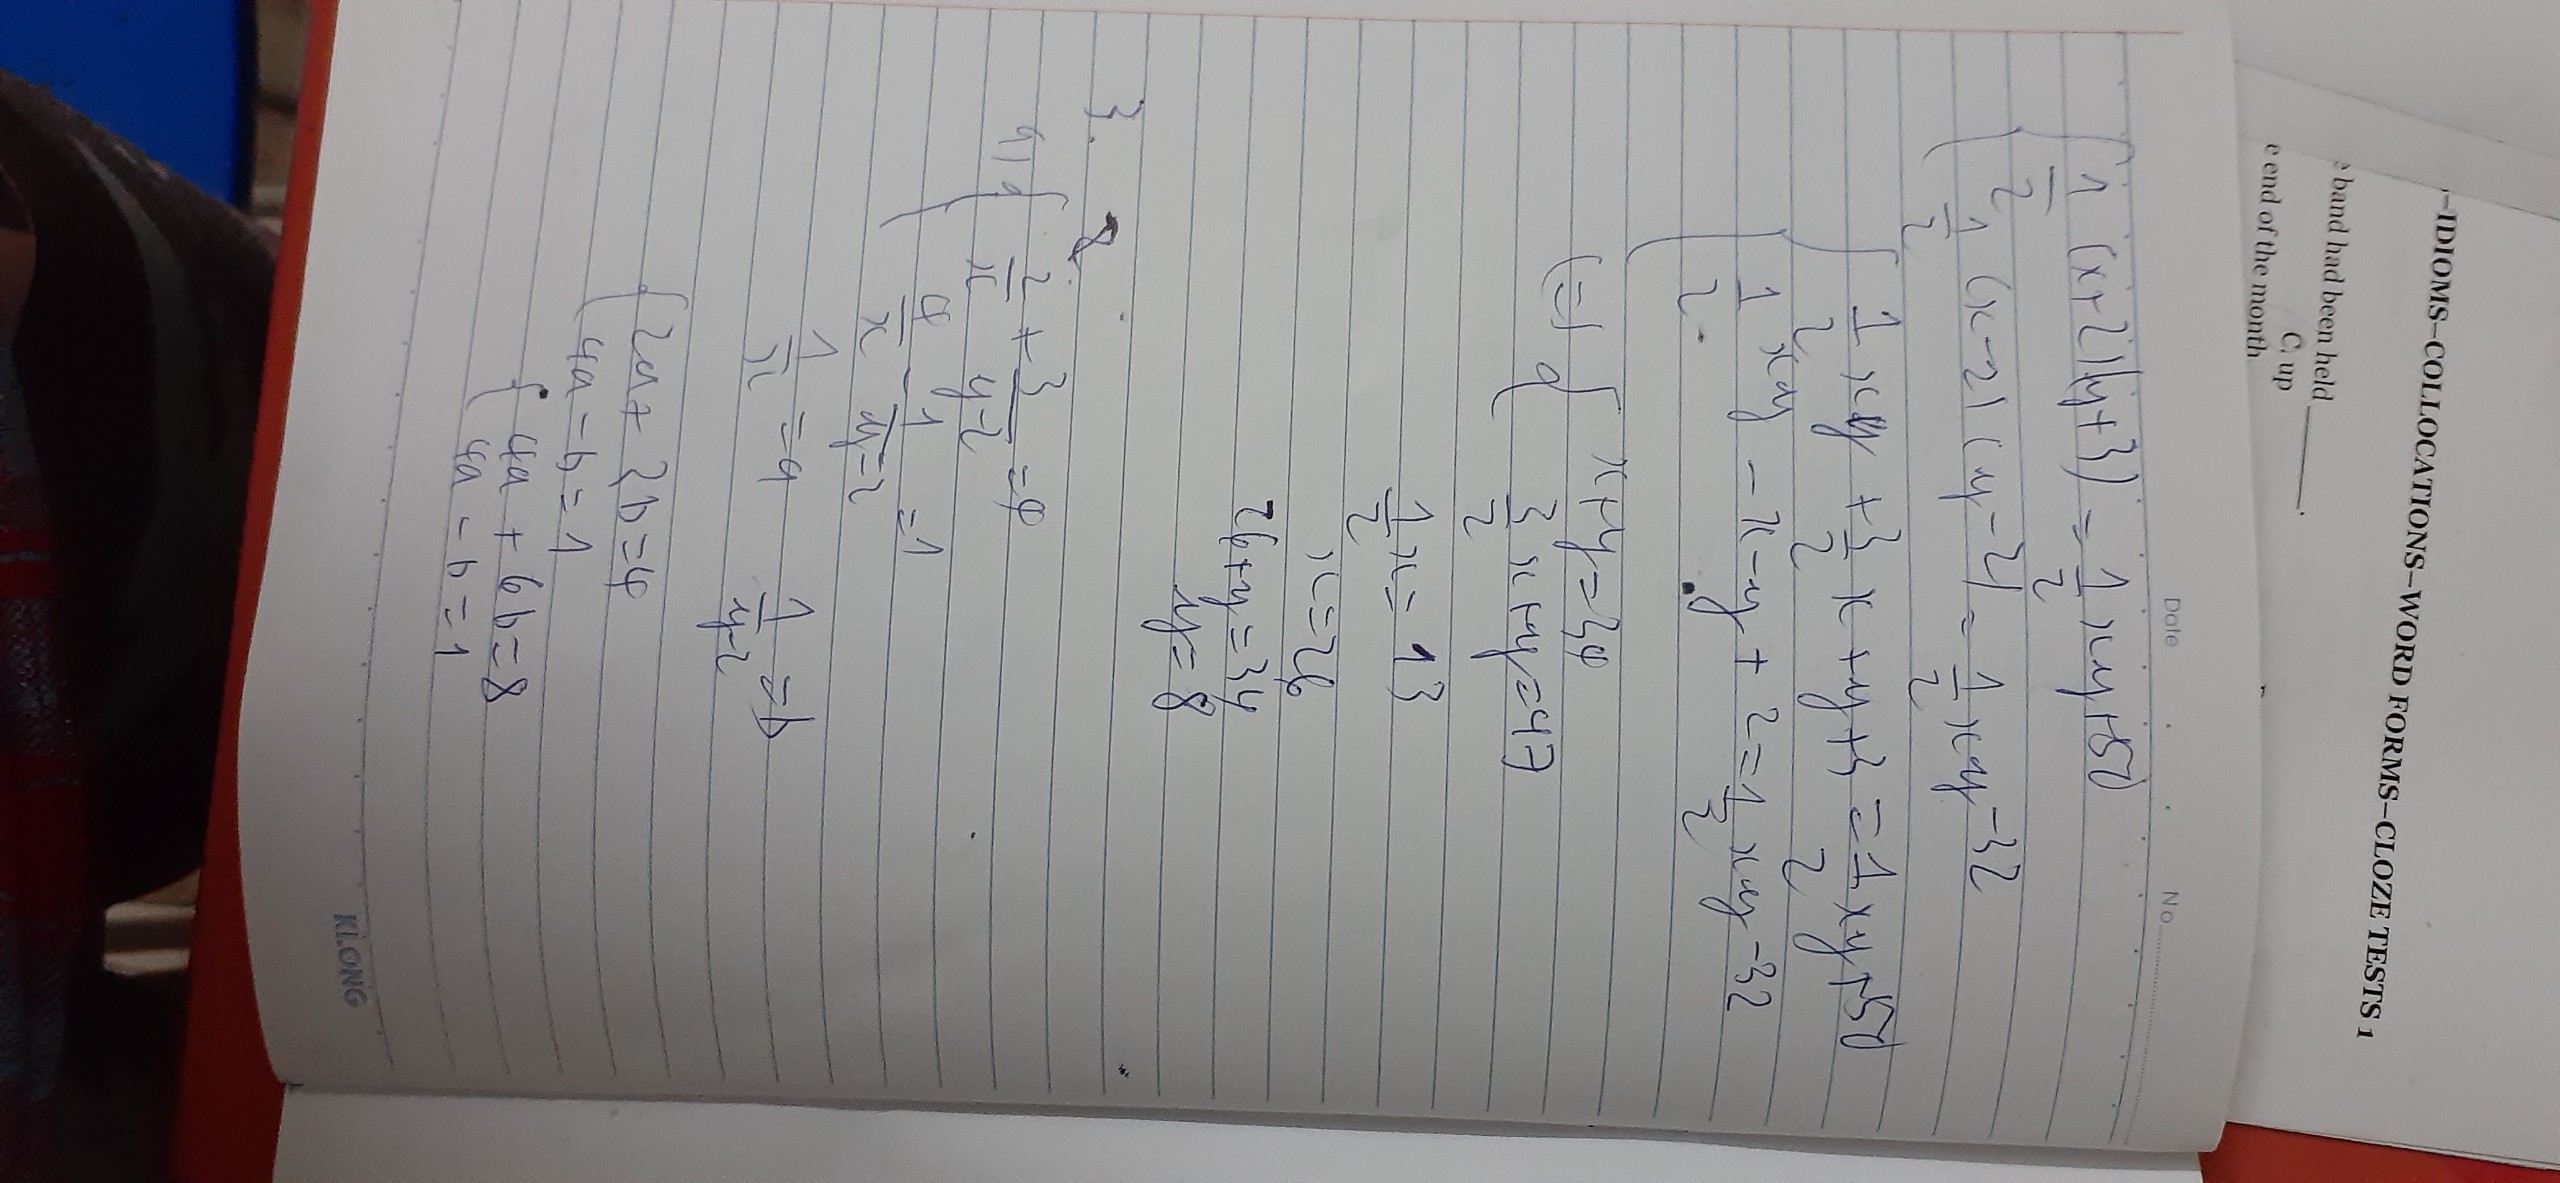 –IDIOMS–COLLOCATIONS–WORD FORMS–CLOZE TESTS 1
band had been held ______.
C. up
e end of the month
Date No.
{ 1/2 (x+2)(y+3) = 1/2 xy+50
1/2 (x-2)(y-2) = 1/2 xy-32
{ 1/2 xy + 3/2 x + y + 3 = 1/2 xy+50
1/2 xy - x - y + 2 = 1/2 xy-32
(=) { x+y=34
3/2 x+y=47
1/2 x = 13
x=26
26+y=34
y=8
3.
a, { 2/x + 3/y-2 = 4
4/x - 1/y-2 = 1
1/x = a 1/y-2 = b
{ 2a + 3b=4
4a - b = 1
{ 4a + 6b = 8
4a - b = 1
KLONG